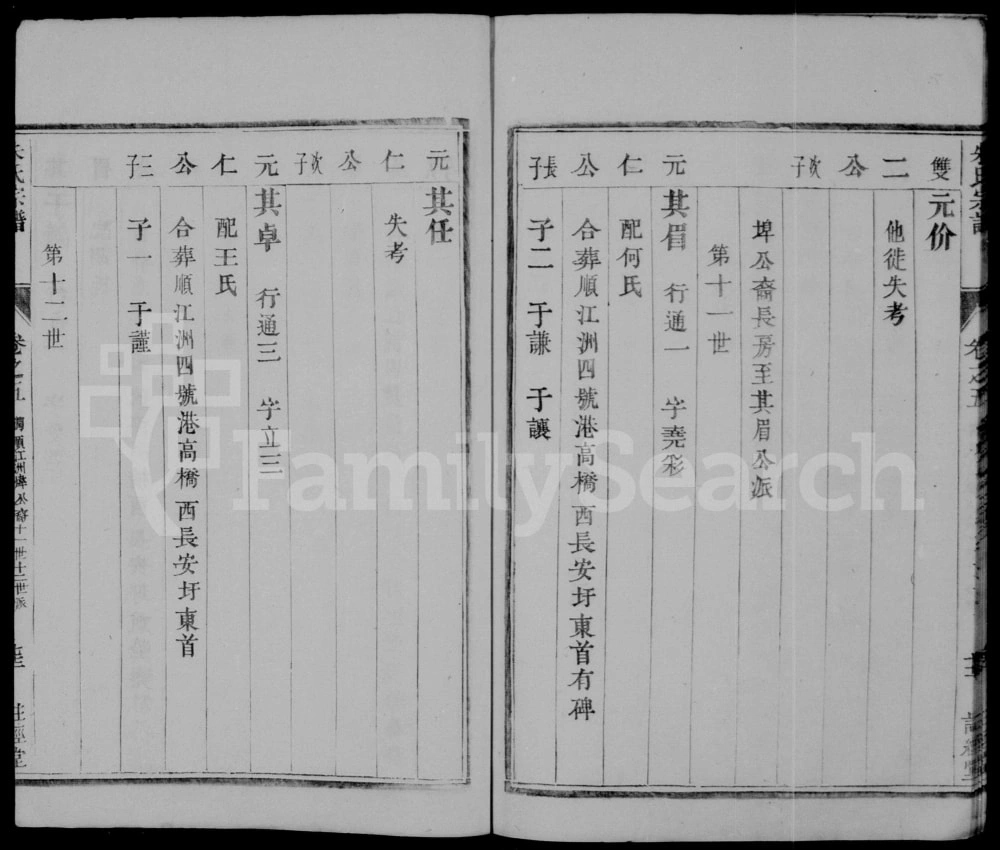 氏宗譜 卷之五
雙 元价
二 他徙失考
公
次子
埤公裔長房至其眉公派
第十一世
元 其眉 行通一 字堯彩
仁 配何氏
公 合葬順江洲四號港高橋西長安圩東首有碑
長子 子二 于謙 于讓
元 其任
仁 失考
公
次子
元 其卓 行通三 字立三
仁 配王氏
公 合葬順江洲四號港高橋西長安圩東首
三子 子一 于謹
第十二世
氏宗譜 卷之五 順江洲埤公裔十一世十二世派 註經堂
FamilySearch